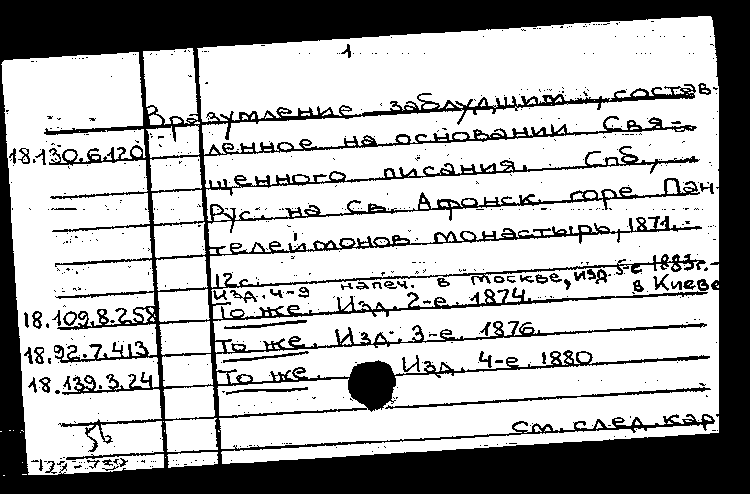 1
Вразумление заблудшим, состав-
18.130.6.120 ленное на основании Свя-
щенного писания. Спб.,
Рус. на Св. Афонск. горе Пан-
телеймонов. монастырь, 1871.-
12 с.
Изд. 4-е напеч. в Москве, изд. 5-е 1883г.-
в Киеве
18.109.8.258 То же. Изд. 2-е. 1874.
18.92.7.413 То же. Изд. 3-е. 1876.
18.139.3.24 То же. Изд. 4-е. 1880
56
см. след. кар